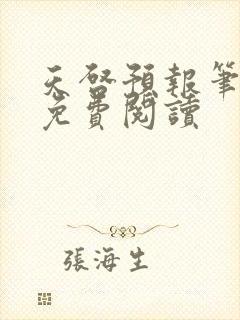 天啓預報筆
免費閱讀
張海生